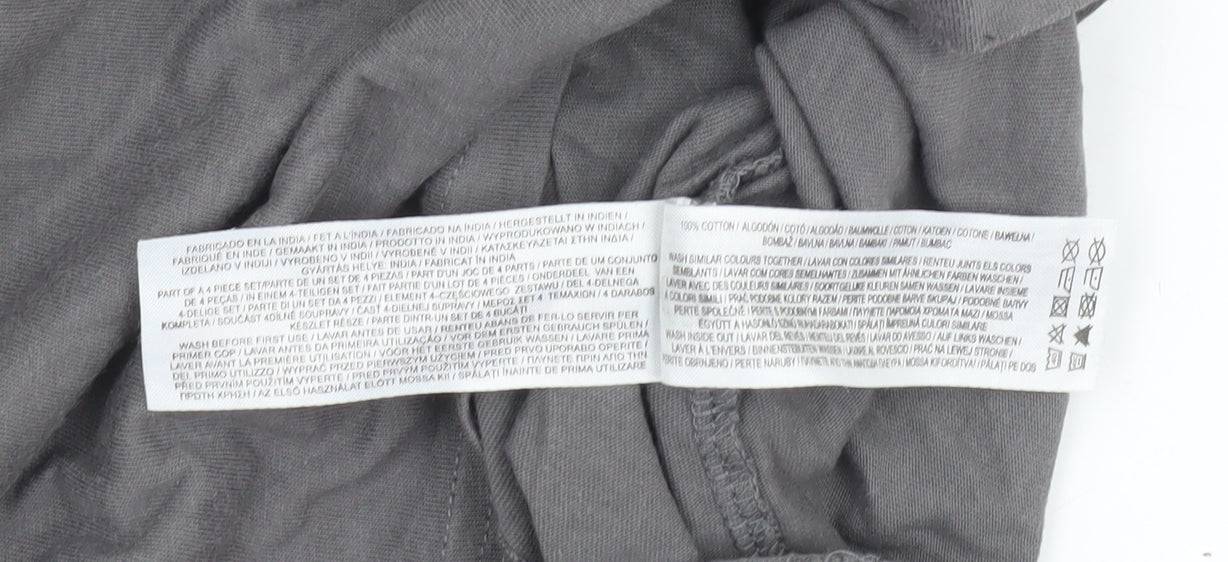 FABRICADO EN LA INDIA / FET A L'ÍNDIA / FABRICADO NA ÍNDIA / HERGESTELLT IN INDIEN /
FABRIQUÉ EN INDE / GEMAAKT IN INDIA / PRODOTTO IN INDIA / WYPRODUKOWANO W INDIACH /
IZDELANO V INDIJI / VYROBENO V INDII / VYROBENÉ V INDII / ΚΑΤΑΣΚΕΥΑΖΕΤΑΙ ΣΤΗΝ ΙΝΔΙΑ /
GYÁRTÁS HELYE: INDIA / FABRICAT ÎN INDIA
PART OF A 4 PIECE SET/PARTE DE UN SET DE 4 PIEZAS / PART D'UN JOC DE 4 PARTS / PARTE DE UM CONJUNTO
DE 4 PEÇAS / IN EINEM 4-TEILIGEN SET / FAIT PARTIE D'UN LOT DE 4 PIÈCES / ONDERDEEL VAN EEN
4-DELIGE SET / PARTE DI UN SET DA 4 PEZZI / ELEMENT 4-CZĘŚCIOWEGO ZESTAWU / DEL 4-DELNEGA
KOMPLETA / SOUČÁST 4DÍLNÉ SOUPRAVY / ČASŤ 4-DIELNEJ SÚPRAVY / ΜΕΡΟΣ ΣΕΤ 4 ΤΕΜΑΧΙΩΝ / 4 DARABOS
KÉSZLET RÉSZE / PARTE DINTR-UN SET DE 4 BUCĂȚI
WASH BEFORE FIRST USE / LAVAR ANTES DE USAR / RENTEU ABANS DE FER-LO SERVIR PER
PRIMER COP / LAVAR ANTES DA PRIMEIRA UTILIZAÇÃO / VOR DEM ERSTEN GEBRAUCH SPÜLEN /
LAVER AVANT LA PREMIÈRE UTILISATION / VÓÓR HET EERSTE GEBRUIK WASSEN / LAVARE PRIMA
DI PRIMO UTILIZZO / WYPRAĆ PRZED PIERWSZYM UŻYCIEM / PRED PRVO UPORABO OPERITE /
PŘED PRVNÍM POUŽITÍM VYPERTE / PRED PRVÝM POUŽITÍM VYPERTE / ΠΛΥΝΕΤΕ ΠΡΙΝ ΑΠΟ ΤΗΝ
ΠΡΩΤΗ ΧΡΗΣΗ / AZ ELSŐ HASZNÁLAT ELŐTT MOSSA KI! / SPĂLAȚI ÎNAINTE DE PRIMA UTILIZARE
100% COTTON / ALGODÓN / COTÓ / ALGODÃO / BAUMWOLLE / COTON / KATOEN / COTONE / BAWEŁNA /
BOMBAŽ / BAVLNA / BAVLNA / ΒΑΜΒΑΚΙ / PAMUT / BUMBAC
WASH SIMILAR COLOURS TOGETHER / LAVAR CON COLORES SIMILARES / RENTEU JUNTS ELS COLORS
SEMBLANTS / LAVAR COM CORES SEMELHANTES / ZUSAMMEN MIT ÄHNLICHEN FARBEN WASCHEN /
LAVER AVEC DES COULEURS SIMILAIRES / SOORTGELIJKE KLEUREN SAMEN WASSEN / LAVARE INSIEME
A COLORI SIMILI / PRAĆ PODOBNE KOLORY RAZEM / PERITE PODOBNE BARVE SKUPAJ / PODOBNÉ BARVY
PERTE SPOLEČNĚ / PERTE S PODOBNÝMI FARBAMI / ΠΛΥΝΕΤΕ ΠΑΡΟΜΟΙΑ ΧΡΩΜΑΤΑ ΜΑΖΙ / MOSSA
EGYÜTT A HASONLÓ SZÍNŰ / SPĂLAȚI ÎMPREUNĂ CULORI SIMILARE
WASH INSIDE OUT / LAVAR DEL REVÉS / RENTEU DEL REVÉS / LAVAR DO AVESSO / AUF LINKS WASCHEN /
LAVER À L'ENVERS / BINNENSTEBUITEN WASSEN / ROVESCIO / PRAĆ NA LEWEJ STRONIE /
PERITE OBRNJENO / PERTE NARUBY / MOSSA KIFORDÍTVA / SPĂLAȚI PE DOS